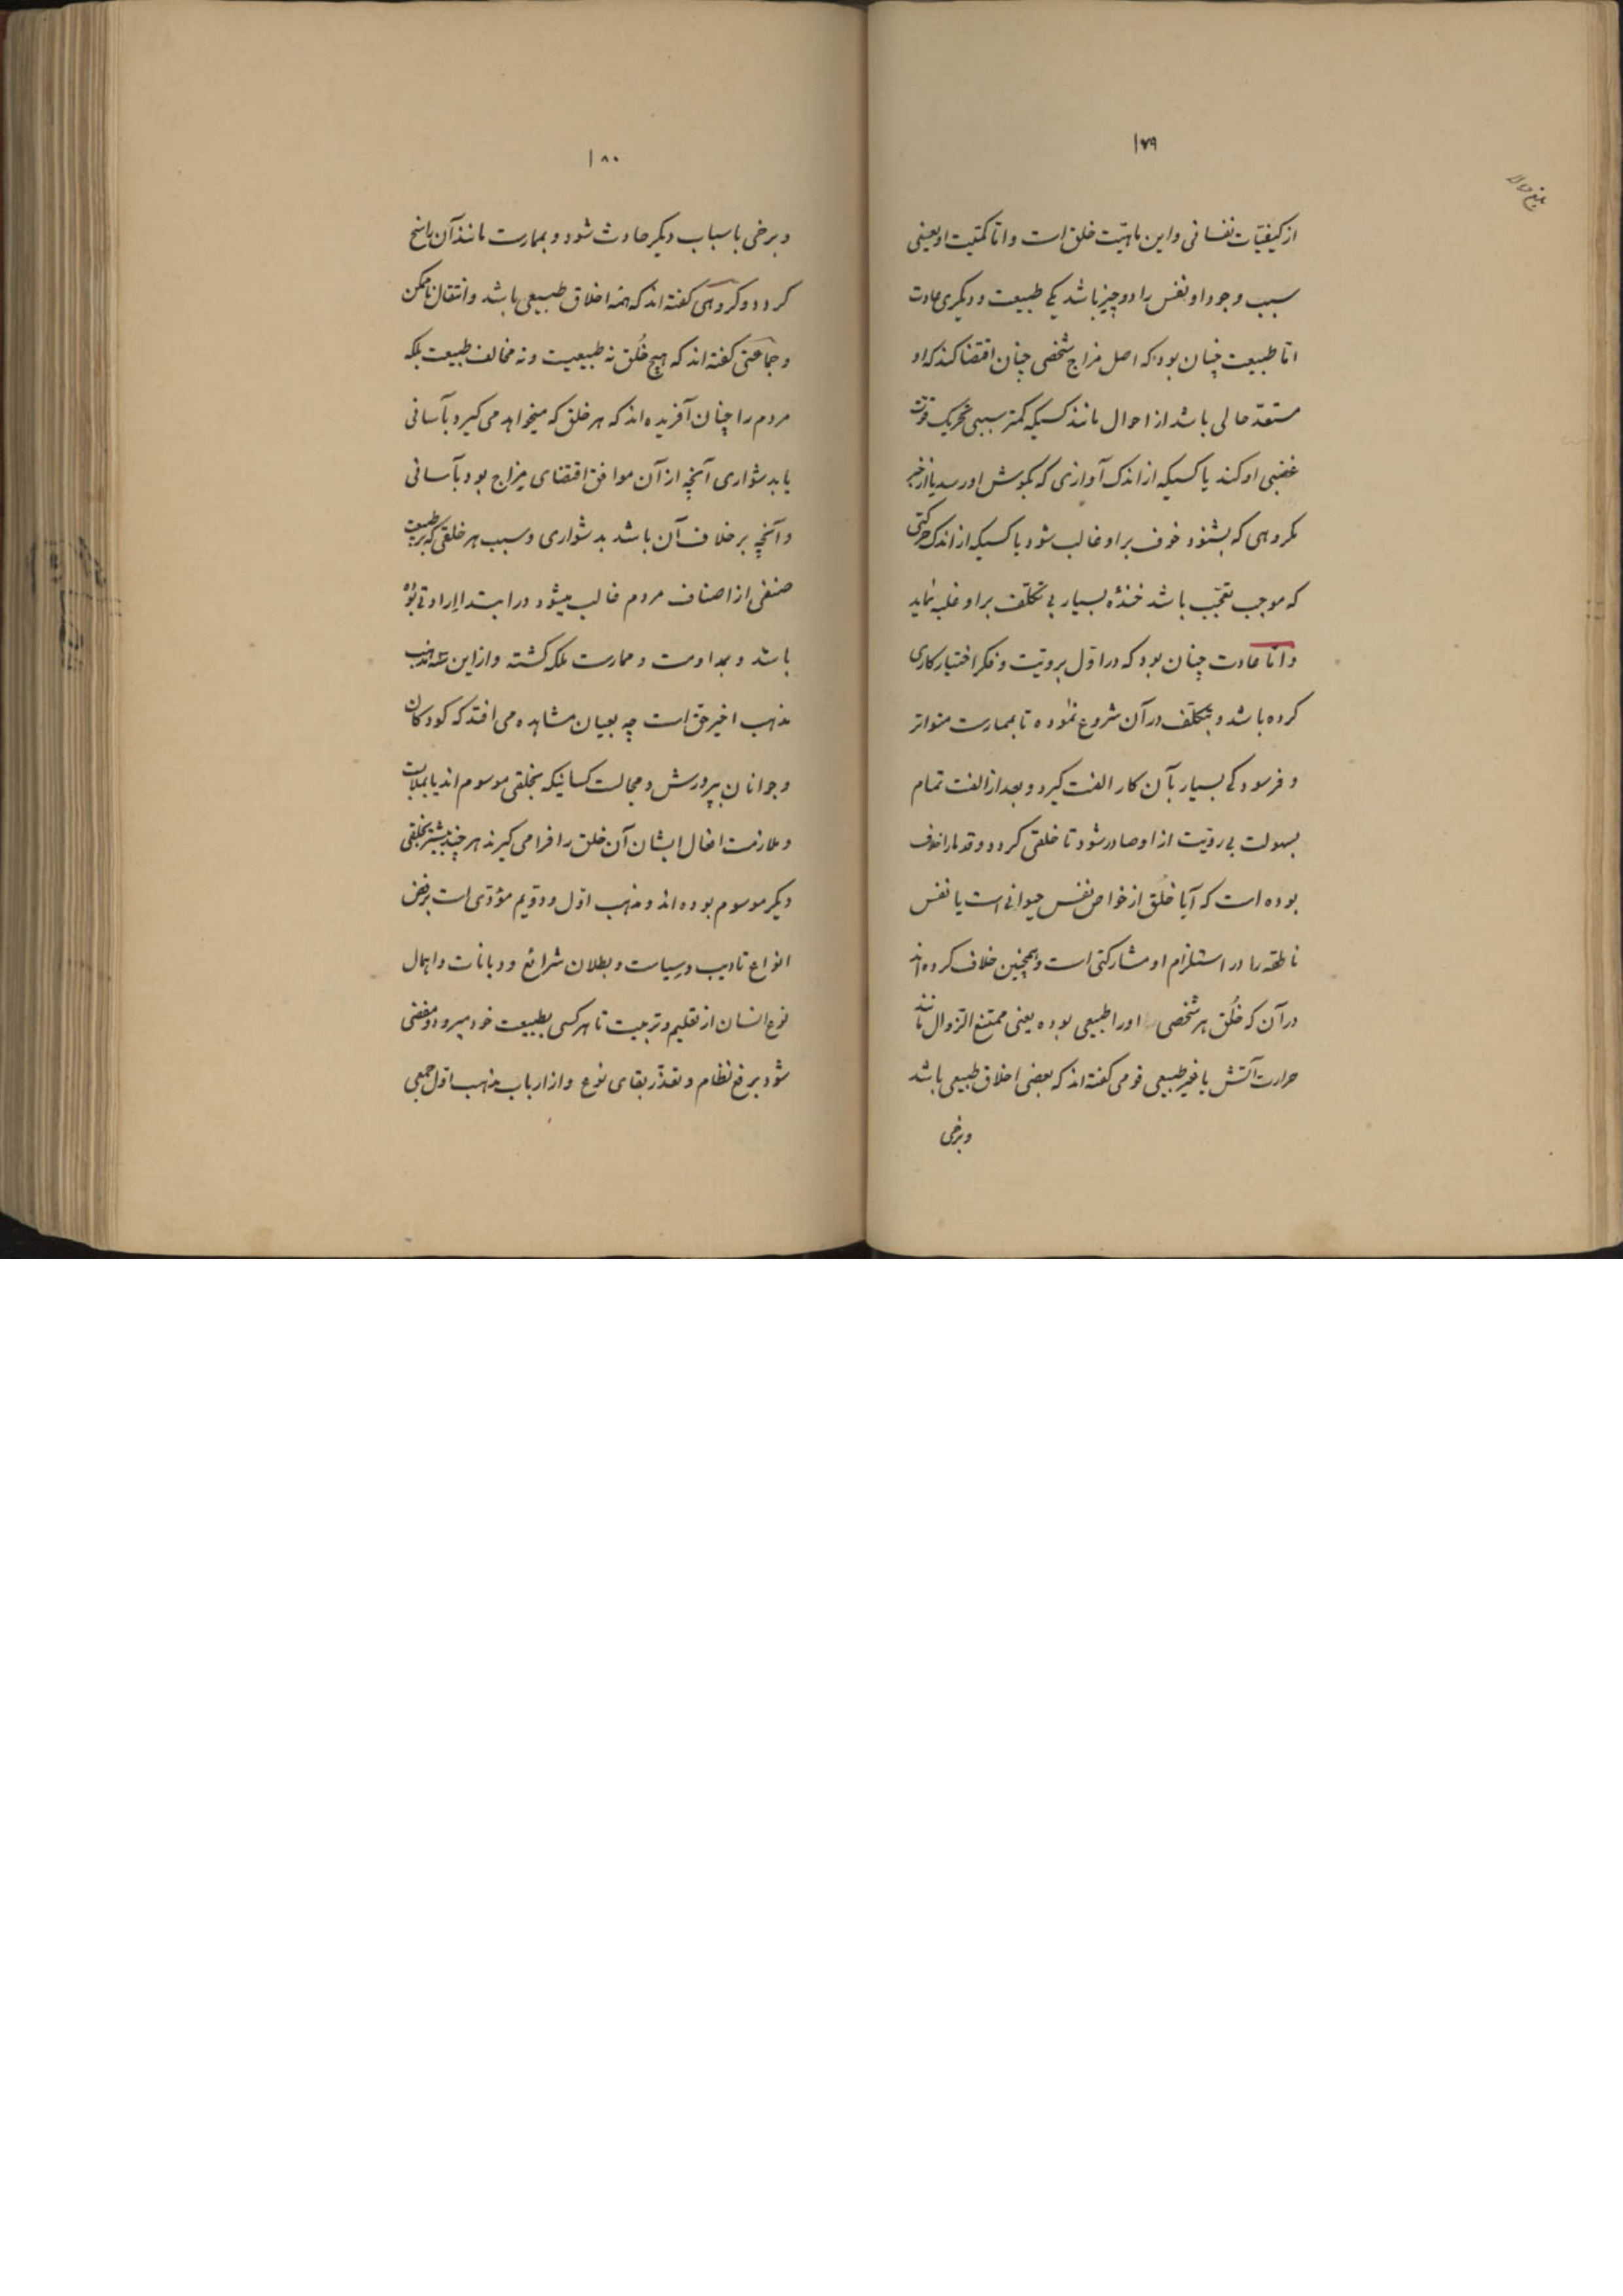 ۱۷۹
از کیفیّات نفسانی و این ماهیّت خلق است و امّا کمیّت او یعنی
سبب وجود او نفس را دو چیز باشد یکی طبیعت و دیگری عادت
امّا طبیعت چنان بود که اصل مزاج شخصی چنان اقتضا کند که او
مستعدّ حالی باشد از احوال مانند کسیکه کمتر سببی تحریک قوّت
غضبی او کند یا کسیکه از اندک آوازی که بگوش او رسد یا از خبر
مکروهی که بشنود خوف بر او غالب شود یا کسیکه از اندک حرکتی
که موجب تعجّب باشد خندهٔ بسیار بی تکلّف بر او غلبه نماید
و امّا عادت چنان بود که در اوّل برویّت و فکر اختیار کاری
کرده باشد و بتکلّف در آن شروع نموده تا بممارست متواتر
و فرسودگی بسیار بآن کار الفت گیرد و بعد از الفت تمام
بسهولت بی رویّت از او صادر شود تا خلقی گردد و قدما را خلاف
بوده است که آیا خُلق از خواص نفس حیوانی است یا نفس
ناطقه را در استلزام او مشارکتی است و همچنین خلاف کرده‌اند
در آن که خُلق هر شخصی او را طبیعی بوده یعنی ممتنع الزوال مانند
حرارت آتش یا غیر طبیعی قومی گفته‌اند که بعضی اخلاق طبیعی باشد
و برخی
۱۸۰
و برخی باسباب دیگر حادث شود و بممارست مانند آن راسخ
گردد و گروهی گفته‌اند که همه اخلاق طبیعی باشد و انتقال ناممکن
و جماعتی گفته‌اند که هیچ خُلق نه طبیعیت و نه مخالف طبیعت بلکه
مردم را چنان آفریده‌اند که هر خلق که میخواهد می گیرد بآسانی
یا بدشواری آنچه از آن موافق اقتضای مزاج بود بآسانی
و آنچه بر خلاف آن باشد بدشواری و سبب هر خلقی که بر طبیعت
صنفی از اصناف مردم غالب میشود در ابتدا ارادتی بوده
باشد و بمداومت و ممارست ملکه گشته و از این سه مذهب
مذهب اخیر حق است چه بعیان مشاهده می افتد که کودکان
و جوانان بپرورش و مجالست کسانیکه بخلقی موسوم‌اند یا بملابست
و ملازمت افعال ایشان آن خلق را فرا می گیرند هر چند پیشتر بخلقی
دیگر موسوم بوده‌اند و مذهب اوّل و دویم مؤدّی است برفض
انواع تادیب و سیاست و بطلان شرائع و دیانات و اهمال
نوع انسان از تعلیم و تربیت تا هر کسی بطبیعت خود میرود و مفضی
شود برفع نظام و تعذّر بقای نوع و از ارباب مذهب اوّل جمعی